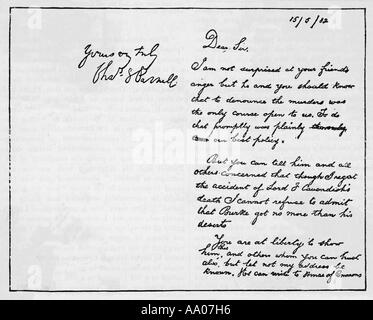 15/5/82
Dear Sir,
I am not surprised at your friend's
anger but he and you should know
that to denounce the murders was
the only course open to us. To do
that promptly was plainly
our best policy.
But you can tell him and all
others concerned that though I regret
the accident of Lord F Cavendish's
death I cannot refuse to admit
that Burke got no more than his
deserts
You are at liberty to show
him this, and others whom you can trust
also, but let not my address be
known. He can write to House of Commons
Yours very truly
Chas. S. Parnell
alamy
AA07H6